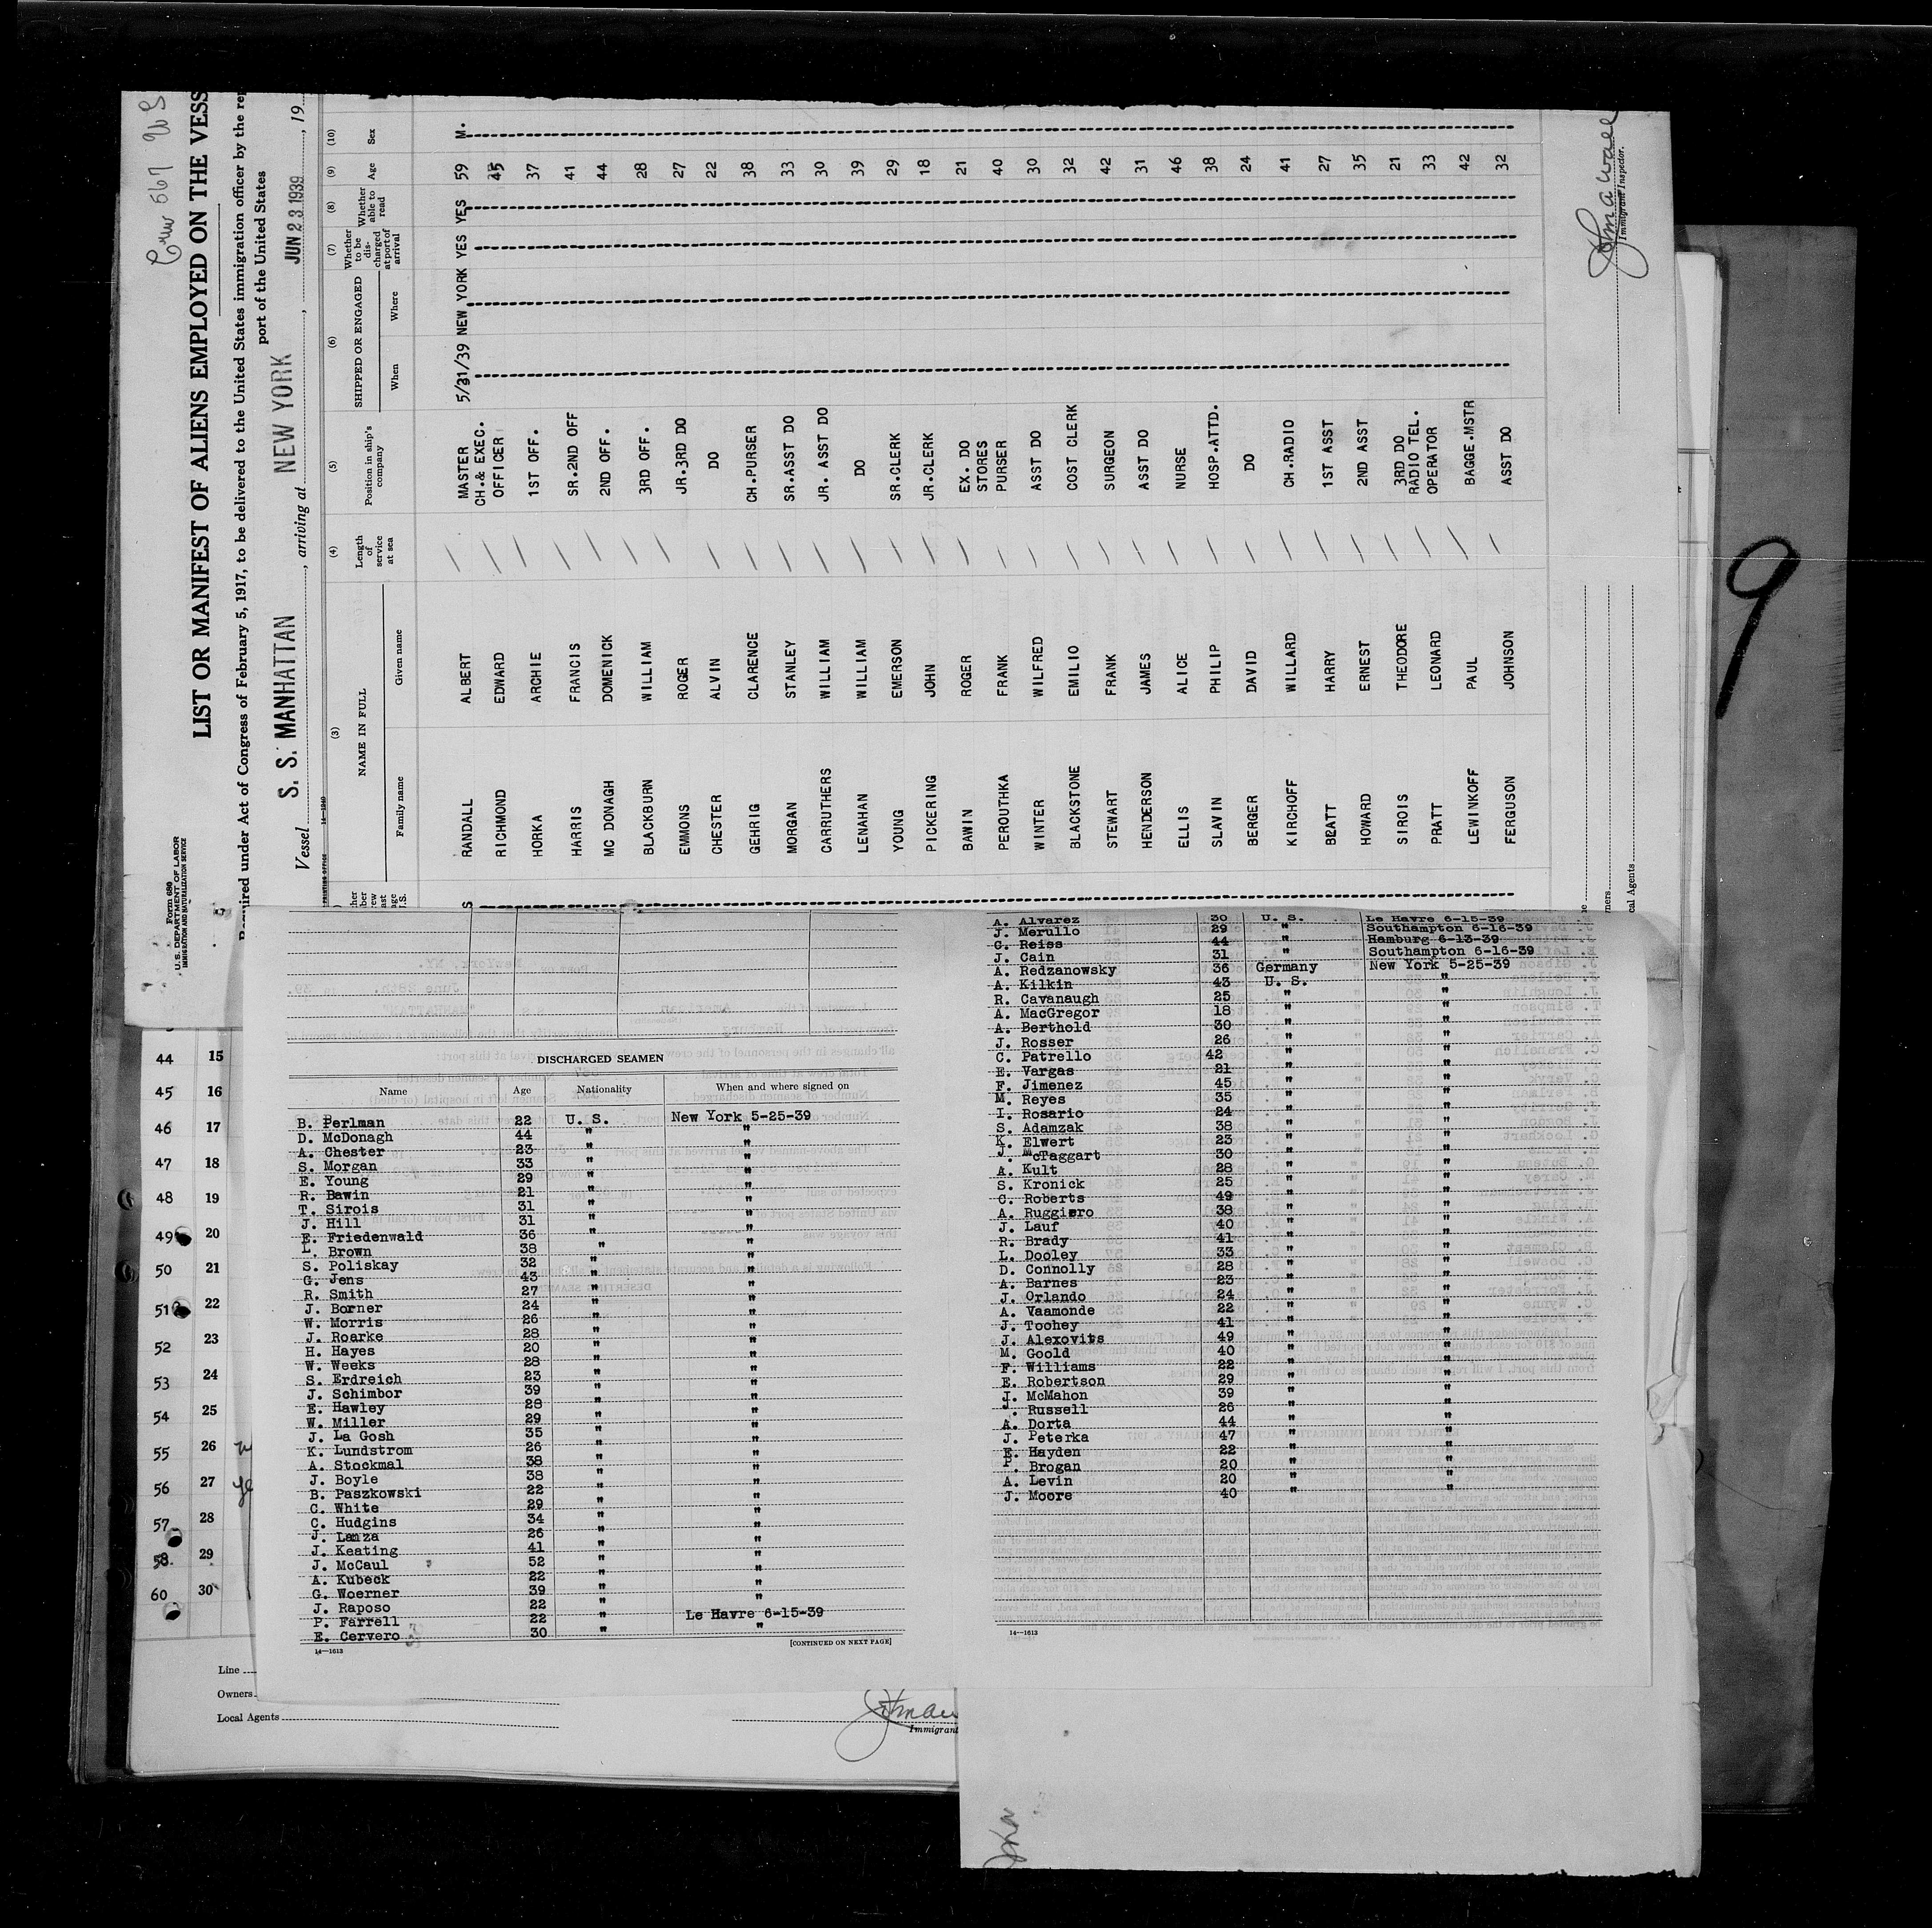 Crew 567 US
Form 680
U. S. DEPARTMENT OF LABOR
IMMIGRATION AND NATURALIZATION SERVICE
LIST OR MANIFEST OF ALIENS EMPLOYED ON THE VESS
Required under Act of Congress of February 5, 1917, to be delivered to the United States immigration officer by the rep
port of the United States
Vessel S. S. MANHATTAN, arriving at NEW YORK, JUN 23 1939, 19
(3) (4) (5) (6) (7) (8) (9) (10)
NAME IN FULL Length of service at sea Position in ship's company SHIPPED OR ENGAGED Whether to be discharged at port of arrival Whether able to read Age Sex
Family name Given name When Where
RANDALL ALBERT MASTER 5/31/39 NEW YORK YES YES 59 M.
RICHMOND EDWARD CH.& EXEC. OFFICER 45
HORKA ARCHIE 1ST OFF. 37
HARRIS FRANCIS SR.2ND OFF 41
MC DONAGH DOMENICK 2ND OFF. 44
BLACKBURN WILLIAM 3RD OFF. 28
EMMONS ROGER JR.3RD DO 27
CHESTER ALVIN DO 22
GEHRIG CLARENCE CH.PURSER 38
MORGAN STANLEY SR.ASST DO 33
CARRUTHERS WILLIAM JR. ASST DO 30
LENAHAN WILLIAM DO 39
YOUNG EMERSON SR.CLERK 29
PICKERING JOHN JR.CLERK 18
BAWIN ROGER EX. DO 21
PEROUTHKA FRANK STORES PURSER 40
WINTER WILFRED ASST DO 30
BLACKSTONE EMILIO COST CLERK 32
STEWART FRANK SURGEON 42
HENDERSON JAMES ASST DO 31
ELLIS ALICE NURSE 46
SLAVIN PHILIP HOSP.ATTD. 38
BERGER DAVID DO 24
KIRCHOFF WILLARD CH.RADIO 41
BRATT HARRY 1ST ASST 27
HOWARD ERNEST 2ND ASST 35
SIROIS THEODORE 3RD DO 21
PRATT LEONARD RADIO TEL. OPERATOR 33
LEWINKOFF PAUL BAGGE.MSTR 42
FERGUSON JOHNSON ASST DO 32
Immigrant Inspector.
9
44 15
45 16
46 17
47 18
48 19
49 20
50 21
51 22
52 23
53 24
54 25
55 26
56 27
57 28
58 29
60 30
DISCHARGED SEAMEN
Name Age Nationality When and where signed on
B. Perlman 22 U. S. New York 5-25-39
D. McDonagh 44 " "
A. Chester 23 " "
S. Morgan 33 " "
E. Young 29 " "
R. Bawin 21 " "
T. Sirois 31 " "
J. Hill 31 " "
E. Friedenwald 36 " "
L. Brown 38 " "
S. Poliskay 32 " "
G. Jens 43 " "
R. Smith 27 " "
J. Borner 24 " "
W. Morris 26 " "
J. Roarke 28 " "
H. Hayes 20 " "
W. Weeks 28 " "
S. Erdreich 23 " "
J. Schimbor 39 " "
E. Hawley 28 " "
W. Miller 29 " "
J. La Gosh 35 " "
K. Lundstrom 26 " "
A. Stockmal 38 " "
J. Boyle 38 " "
B. Paszkowski 22 " "
C. White 29 " "
C. Hudgins 34 " "
J. Lanza 26 " "
J. Keating 41 " "
J. McCaul 52 " "
A. Kubeck 22 " "
G. Woerner 39 " "
J. Raposo 22 " "
P. Farrell 22 " Le Havre 6-15-39
E. Cervero 30 " "
14—1613 [CONTINUED ON NEXT PAGE]
A. Alvarez 30 U. S. Le Havre 6-15-39
J. Merullo 29 " Southampton 6-16-39
G. Reiss 44 " Hamburg 6-13-39
J. Cain 31 " Southampton 6-16-39
A. Redzanowsky 36 Germany New York 5-25-39
A. Kilkin 43 U. S. "
R. Cavanaugh 25 " "
A. MacGregor 18 " "
A. Berthold 30 " "
J. Rosser 26 " "
C. Patrello 42 " "
E. Vargas 21 " "
F. Jimenez 45 " "
M. Reyes 35 " "
I. Rosario 24 " "
S. Adamzak 38 " "
K. Elwert 23 " "
J. McTaggart 30 " "
A. Kult 28 " "
S. Kronick 25 " "
C. Roberts 49 " "
A. Ruggiero 38 " "
J. Lauf 40 " "
R. Brady 41 " "
L. Dooley 33 " "
D. Connolly 28 " "
A. Barnes 23 " "
J. Orlando 24 " "
A. Vaamonde 22 " "
J. Toohey 41 " "
J. Alexovits 49 " "
M. Goold 40 " "
F. Williams 22 " "
E. Robertson 29 " "
J. McMahon 39 " "
J. Russell 26 " "
A. Dorta 44 " "
J. Peterka 47 " "
E. Hayden 22 " "
P. Brogan 20 " "
A. Levin 20 " "
J. Moore 40 " "
14—1613
Line
Owners
Local Agents
Immigrant